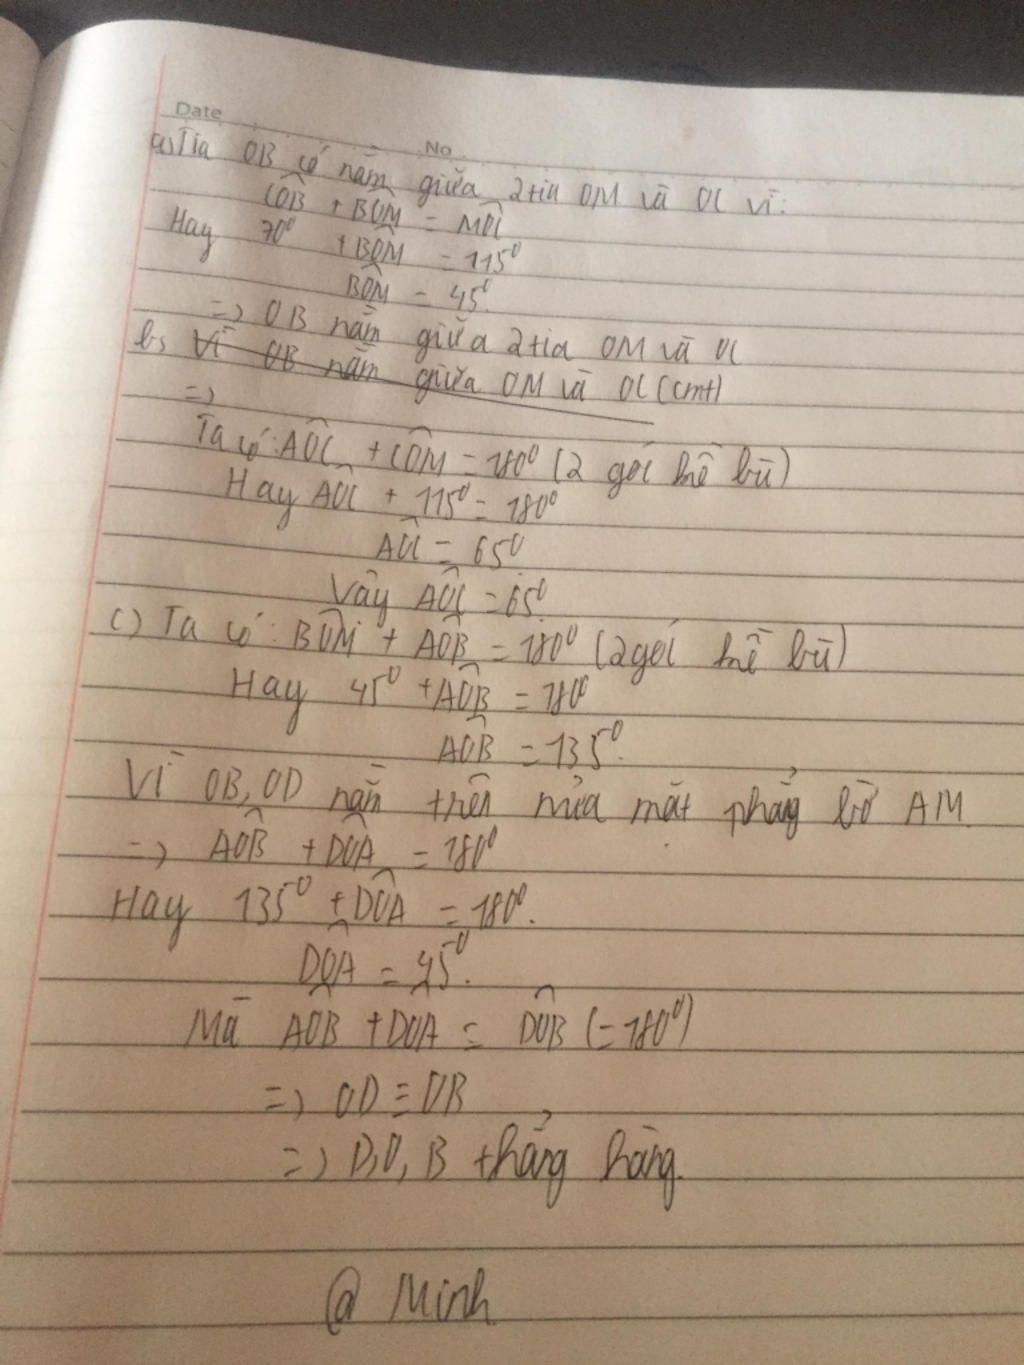 Date
No
a) Tia OB có nằm giữa 2 tia OM và OC vì:
CÔB + BÔM = MÔC
Hay 70⁰ + BÔM = 115⁰
BÔM = 45⁰
=> OB nằm giữa 2 tia OM và OC
b) Vì OB nằm giữa OM và OC (cmt)
=>
Ta có: AÔC + CÔM = 180⁰ (2 góc kề bù)
Hay AÔC + 115⁰ = 180⁰
AÔC = 65⁰
Vậy AÔC = 65⁰
c) Ta có: BÔM + AÔB = 180⁰ (2 góc kề bù)
Hay 45⁰ + AÔB = 180⁰
AÔB = 135⁰.
Vì OB, OD nằm trên nửa mặt phẳng bờ AM
=> AÔB + DÔA = 180⁰
Hay 135⁰ + DÔA = 180⁰.
DÔA = 45⁰.
Mà AÔB + DÔA = DÔB (= 180⁰)
=> OD ≡ OB
=> D, O, B thẳng hàng.
@ Minh